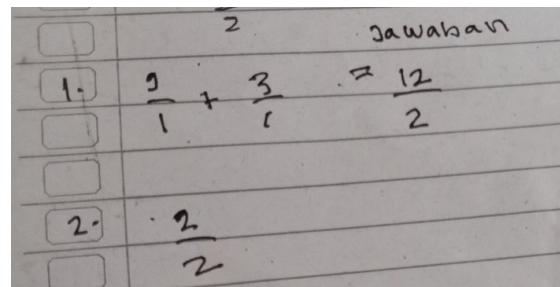 2
Jawaban
1. 9/1 + 3/1 = 12/2
2. 2/2